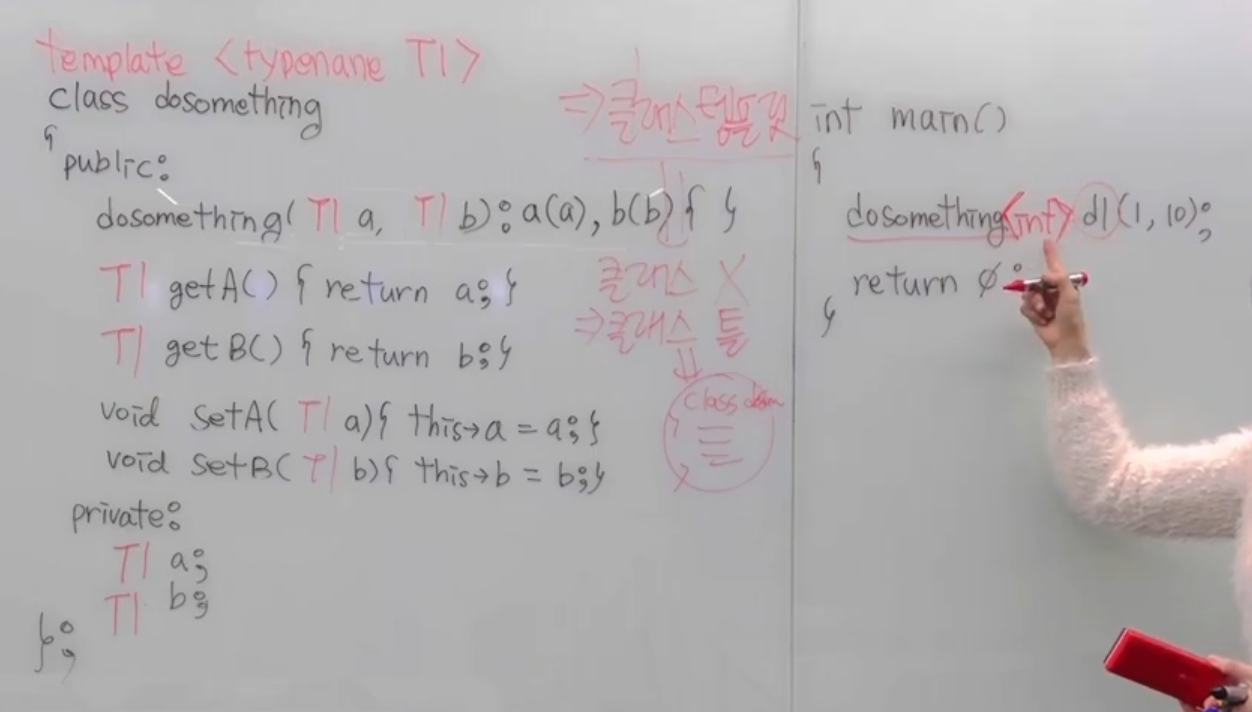 template <typename T1>
class dosomething
{
public:
dosomething( T1 a, T1 b): a(a), b(b){ }
T1 getA() { return a; }
T1 getB() { return b; }
void setA( T1 a){ this→a = a; }
void setB( T1 b){ this→b = b; }
private:
T1 a;
T1 b;
};
⇒ 클래스 템플릿
클래스 X
⇒ 클래스 틀
⇓
class
{
}
int main()
{
dosomething<int> d1(1, 10);
return 0;
}